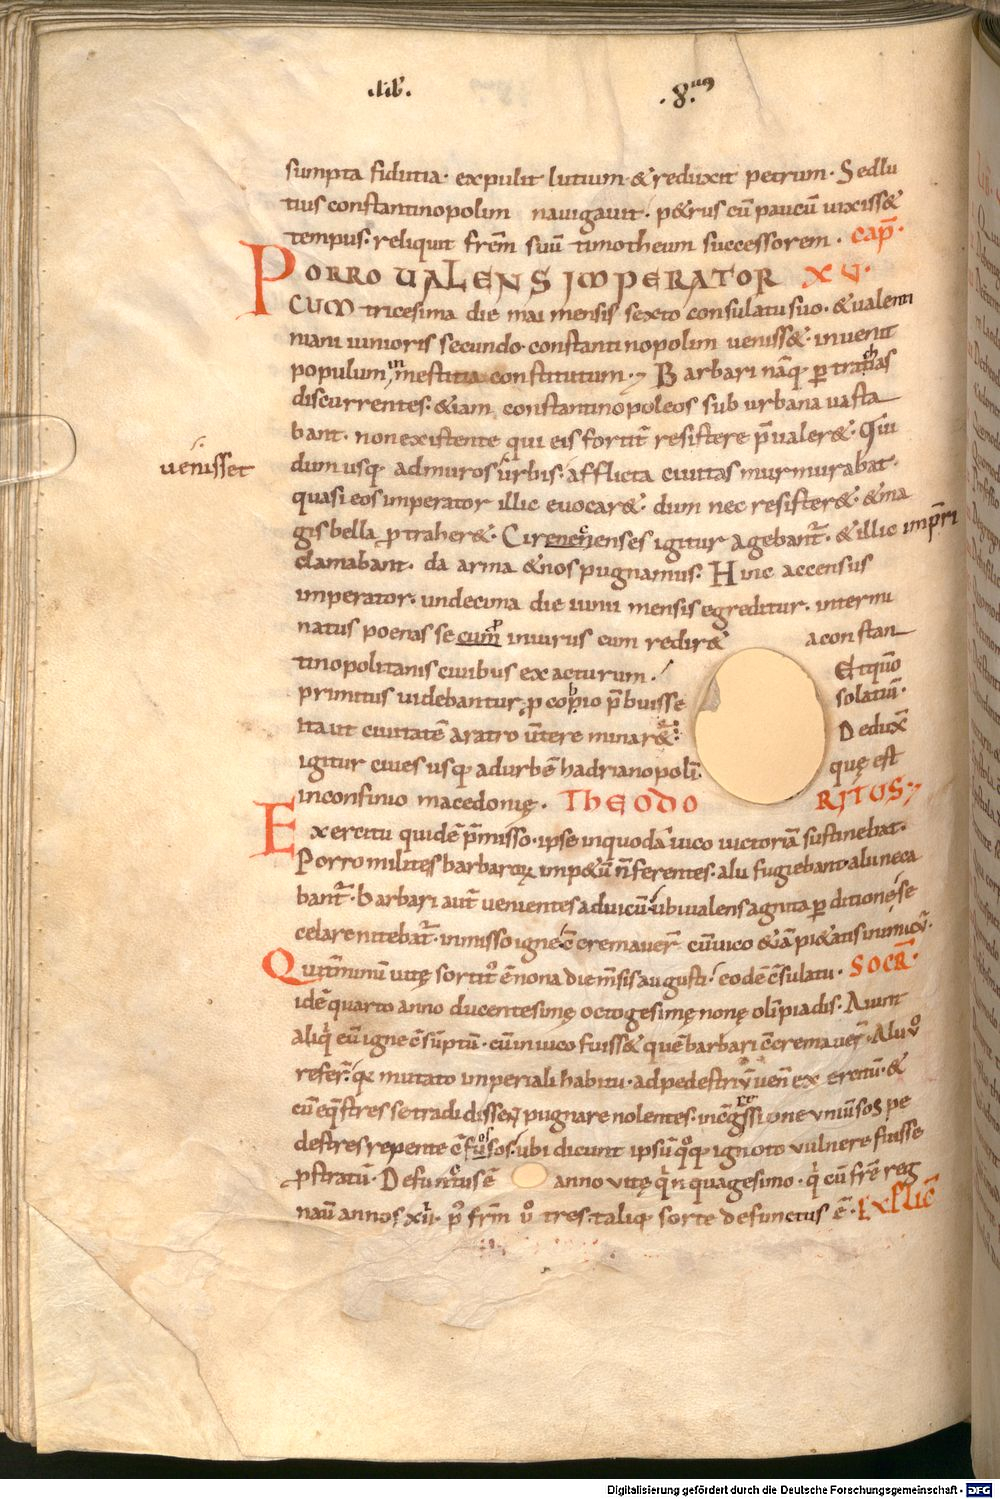 .lib̄. .8.us
sumpta fidutia· expulit lutium & reduxit petrum· Sed lu
tius constantinopolim nauigauit· p&rus cū paucū uixiss&
tempus· reliquit frēm suū timotheum successorem· cap̄·
PORRO UALENS IMPERATOR XV·
CUM tricesima die mai mensis sexto consulatu suo· & ualenti
niani iunioris secundo· constantinopolim ueniss&· inuenit
populum in mestitia constitutum·, Barbari nāq· p trachas
discurrentes· &iam constantinopoleos suburbana uasta
bant· non existente qui eis fortit̄ resistere p̄ualer&· Qui
uenisset
dum usq· ad muros urbis· afflicta ciuitas murmurabat·
quasi eos imperator illic euocar&· dum nec resister&· & ma
gis bella ptraher&· Cirenenenses igitur agebant̄· & illic imp̄ri
clamabant· da arma & nos pugnamus· Hinc accensus
imperator· undecima die iunii mensis egreditur· intermi
natus poenas se cum inuirus cum redir& a constan
tinopolitanis ciuibus exacturum· Et iquō
primitus uidebantur, p copio p̄buisse solatiū·
Ita ut ciuitatē aratro ūtere minar&· Dedux̄
igitur ciues usq· ad urbē hadrianopolī· quę est
in confinio macedonię· THEODO RITUS·,
Exercitu quidē p̄misso· ipse in quodā uico uictoriā sustinebat·
Porro milites barbaroꝝ imp&ū n̄ ferentes· alii fugiebant· alii neca
bant̄· Barbari aut̄ uenientes ad uicū· ubi ualens agnita pditione· se
celare nitebat̄· inmisso igne· c̄cremauer̄ cū uico & iā pi&atis inimicū·
Qui t̄minū uitę sortit̄ ē nona die m̄sis augusti· eodē c̄sulatu· SOCR̄·
idē quarto anno ducentesimę octogesimę nonę olī piadis· Aiunt
aliq̄ eū igne c̄sūptū· cū in uico fuiss& quē barbari c̄cremauer̄· Alii ū
refer̄· qꝫ mutato imperiali habitu· ad pedestriū uen̄ exercitū· &
cū eq̄stres se tradidisseꝝ pugnare nolentes· in c̄gressione uniūsos pe
destres repente c̄fusos· ubi dicunt ipsū qq· ignoto uulnere fuisse
pstratū· Defunctus ē anno uitę q̄nquagesimo· q̄ cū frē reg
nau̅ annos xii· p̄ frm̄ ū tres· taliq· sorte defunctus ē· Explic̄
Digitalisierung gefördert durch die Deutsche Forschungsgemeinschaft - DFG